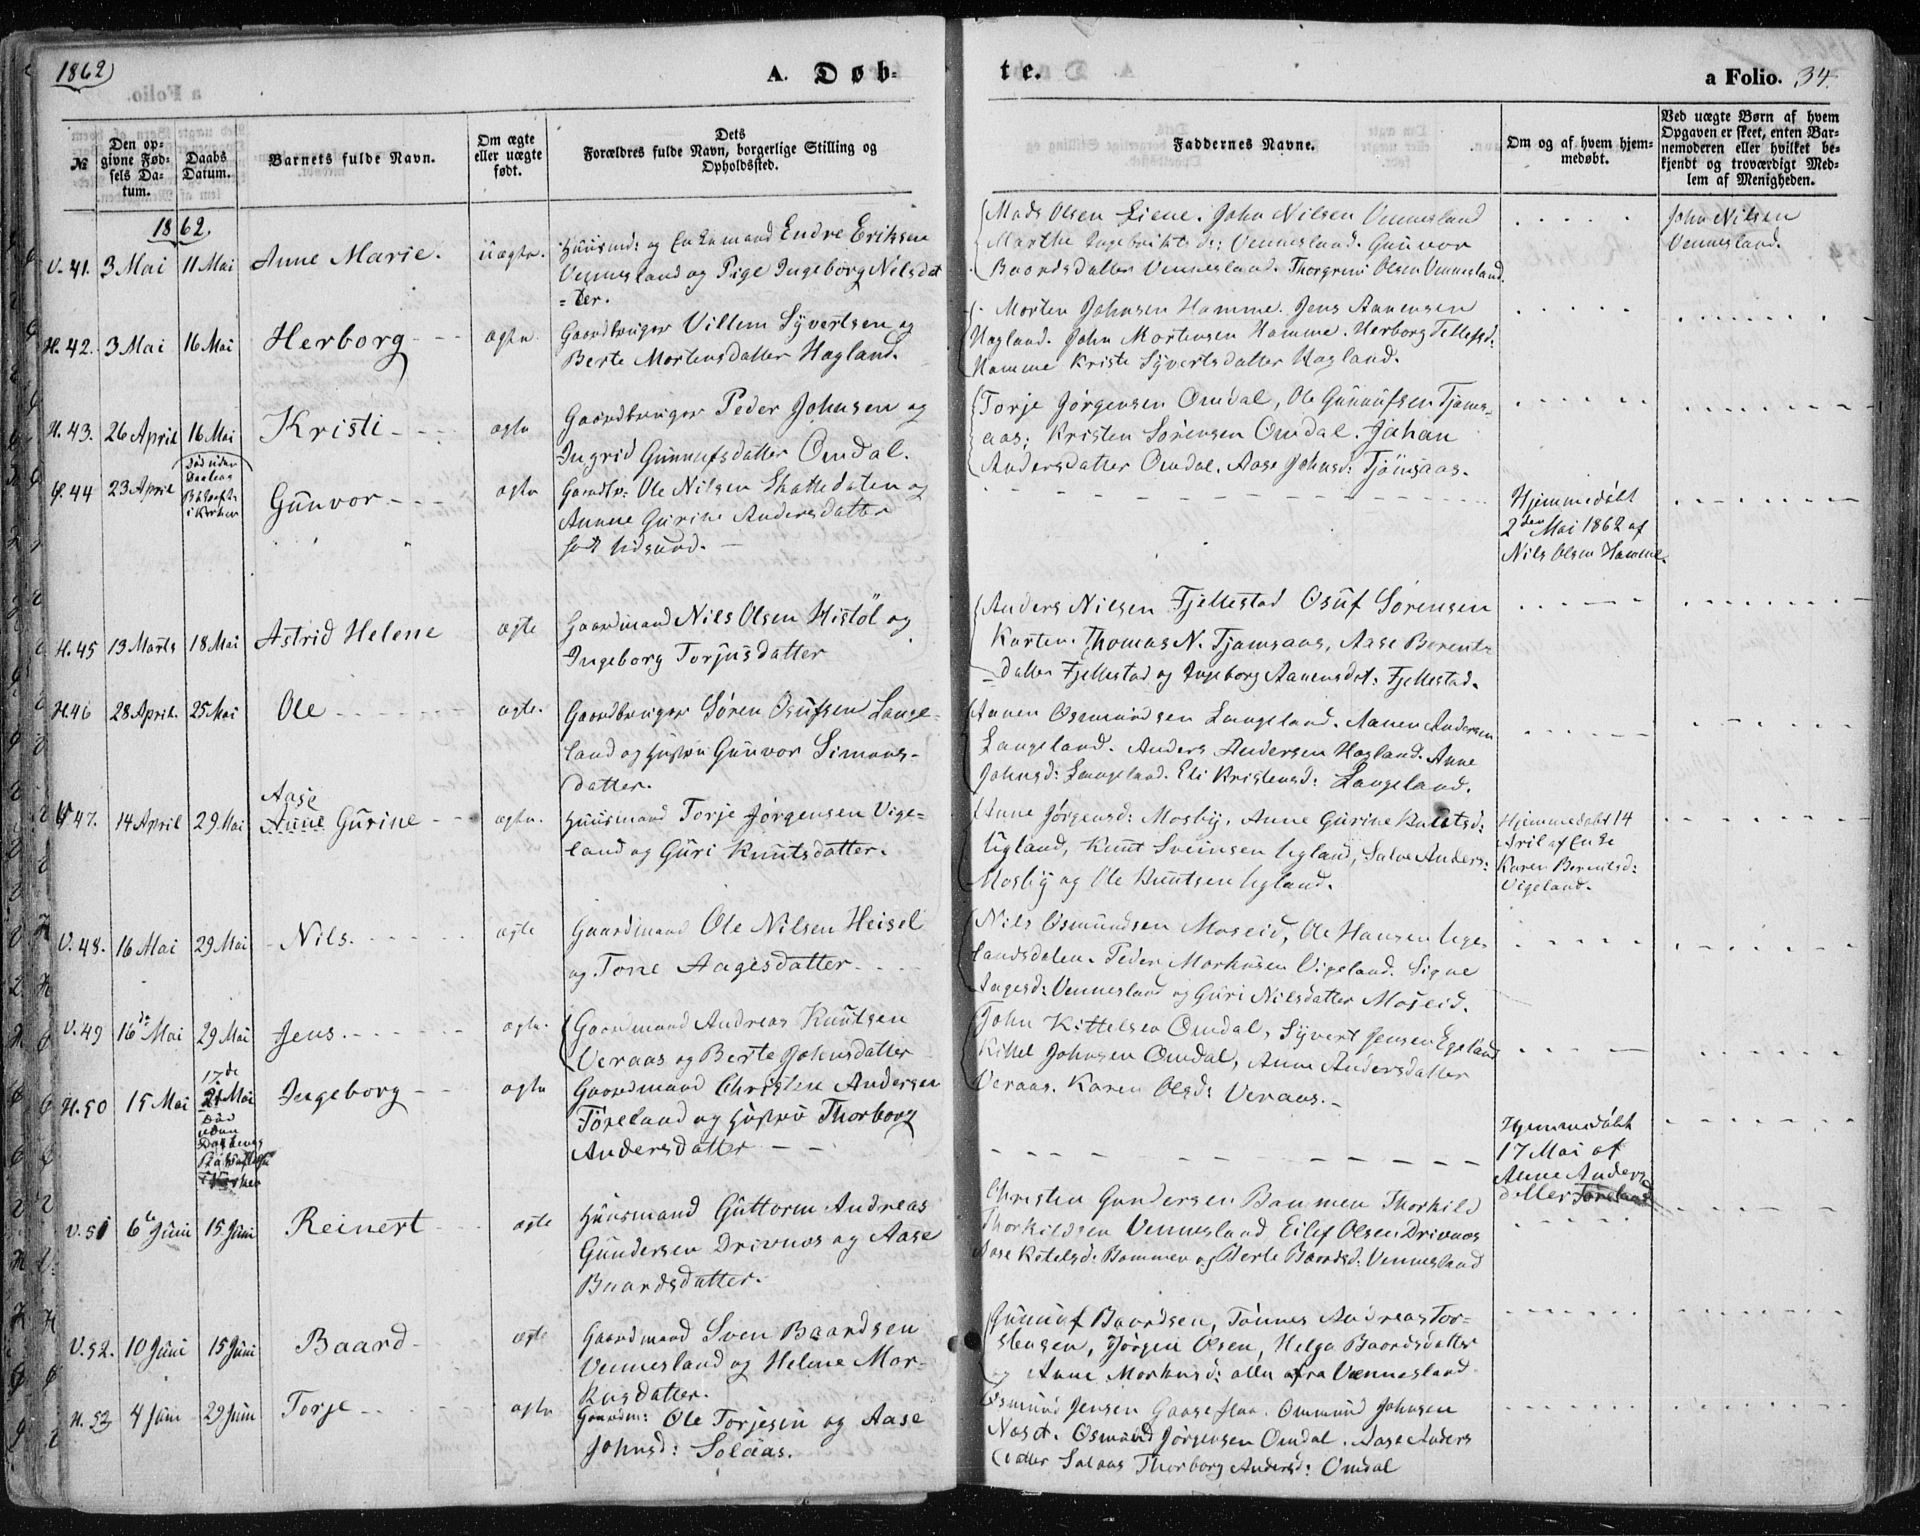 1862
A. Døb-
te.
a Folio. 34.
№
Den op-
givne Fød-
sels Da-
tum.
Daabs
Datum.
Barnets fulde Navn.
Om ægte
eller uægte
født.
Dets
Forældres fulde Navn, borgerlige Stilling og
Opholdssted.
Faddernes Navne.
Om og af hvem hjem-
medøbt.
Ved uægte Børn af hvem
Opgaven er skeet, enten Bar-
nemoderen eller hvilket be-
kjendt og troværdigt Med-
lem af Menigheden.
1862.
V. 41. 3 Mai 11 Mai Anne Marie. uægte.
Huusmd: og Enkemand Endre Eriksen
Vennesland og Pige Ingeborg Nilsdat
-ter.
Mads Olsen Liene. John Nilsen Vennesland
Marthe Ingebriktsd: Vennesland. Gunvor
Baardsdatter Vennesland. Thorgrim Olsen Vennesland.
John Nilsen
Vennesland.
H. 42. 3 Mai 16 Mai Herborg ægte.
Gaardbruger Villem Syvertsen og
Berte Mortensdatter Hagland.
Morten Johnsen Homme. Jens Aanensen
Hagland. John Mortensen Homme. Herborg Tellefsd:
Homme Kriste Syvertsdatter Hagland.
H. 43. 26 April 16 Mai Kristi ægte
Gaardbruger Peder Johnsen og
Ingrid Gunnufsdatter Omdal.
Torje Jørgensen Omdal, Ole Gunnufsen Tjoms-
aas; Kristen Sørensen Omdal. Johan
Andersdatter Omdal. Aase Johnsd: Tjomsaas.
44 23 April
Død uden
i Kirken
Gunvor ægte
Gaardbr: Ole Nilsen Skattedalen og
Anne Gurine Andersdatter
Hjemmedøbt
2den Mai 1862 af
Nils Olsen Homme.
H. 45 13 Marts 18 Mai Astrid Helene ægte
Gaardmand Nils Olsen Histøl og
Ingeborg Torjusdatter
Anders Nilsen Fjellestad Osuf Sørensen
Korten. Thomas N. Tjomsaas, Aase Berents
-datter Fjellestad og Ingeborg Aanensdt: Fjellestad.
H. 46 28 April. 25 Mai Ole ægte.
Gaardbruger Søren Osufsen Lange-
land og Hustru Gunvor Simons-
datter.
Aanen Osmundsen Langeland. Aanen Andersen
Langeland. Anders Andersen Hagland. Anne
Johnsd: Langeland. Eli Kristensd: Langeland.
47. 14 April 29 Mai
Aase
Anne Gurine ægte.
Huusmand Torje Jørgensen Vige-
land og Guri Knutsdatter.
Anne Jørgensd: Mosby, Anne Gurine Knutsd:
Ugland, Knut Sveinsen Ugland, Salve Anders:
Mosby og Ole Knutsen Ugland.
Hjemmedøbt 14
April af Enke
Karen Berentsd:
Vigeland.
V. 48. 16 Mai 29 Mai Nils. ægte
Gaardmand Ole Nilsen Heisel
og Tone Aagesdatter
Nils Osmundsen Moseid, Ole Hansen Uge-
landsdalen. Peder Markusen Vigeland. Signe
Aagesd: Vennesland og Guri Nilsdatter Moseid.
V. 49 16de Mai 29 Mai Jens. ægte.
Gaardmand Andreas Knutsen
Veraas og Berte Johnsdatter
John Kittelsen Omdal, Syvert Jensen Egeland
Kittel Johnsen Omdal, Anne Andersdatter
Veraas. Karen Olsd: Veraas.
H. 50 15 Mai
17de
21 Mai
Død
uden
Ingeborg ægte
Gaardmand Christen Andersen
Føreland og Hustru Thorborg
Andersdatter
Hjemmedøbt
17 Mai af
Anne Anders
datter Føreland
V. 51 6te Juni 15 Juni Reinert ægte
Huusmand Guttorm Andreas
Gundersen Drivnes og Aase
Baardsdatter.
Christen Gundersen Bommen Thorkild
Thorkildsen Vennesland Eilef Olsen Drivnæs
Aase Kitelsd: Bommen og Berte Baardsd: Vennesland
V. 52. 10 Juni 15 Juni Baard ægte
Gaardmand Sven Baardsen
Vennesland og Helene Mar-
kusdatter.
Gunuf Baardsen, Tønnes Andreas Tor-
stensen, Jørgen Olsen, Helga Baardsdatter
og Anne Markusd: alle fra Vennesland
H. 53 4 Juni 29 Juni Torje ægte
Gaardm: Ole Torjesen og Aase
Johnsd: Solaas.
Osmund Jensen Gaaseflaa. Ommund Johnsen
Næset. Osmund Jørgensen Omdal. Aase Anders
datter Solaas Thorborg Andersd: Omdal